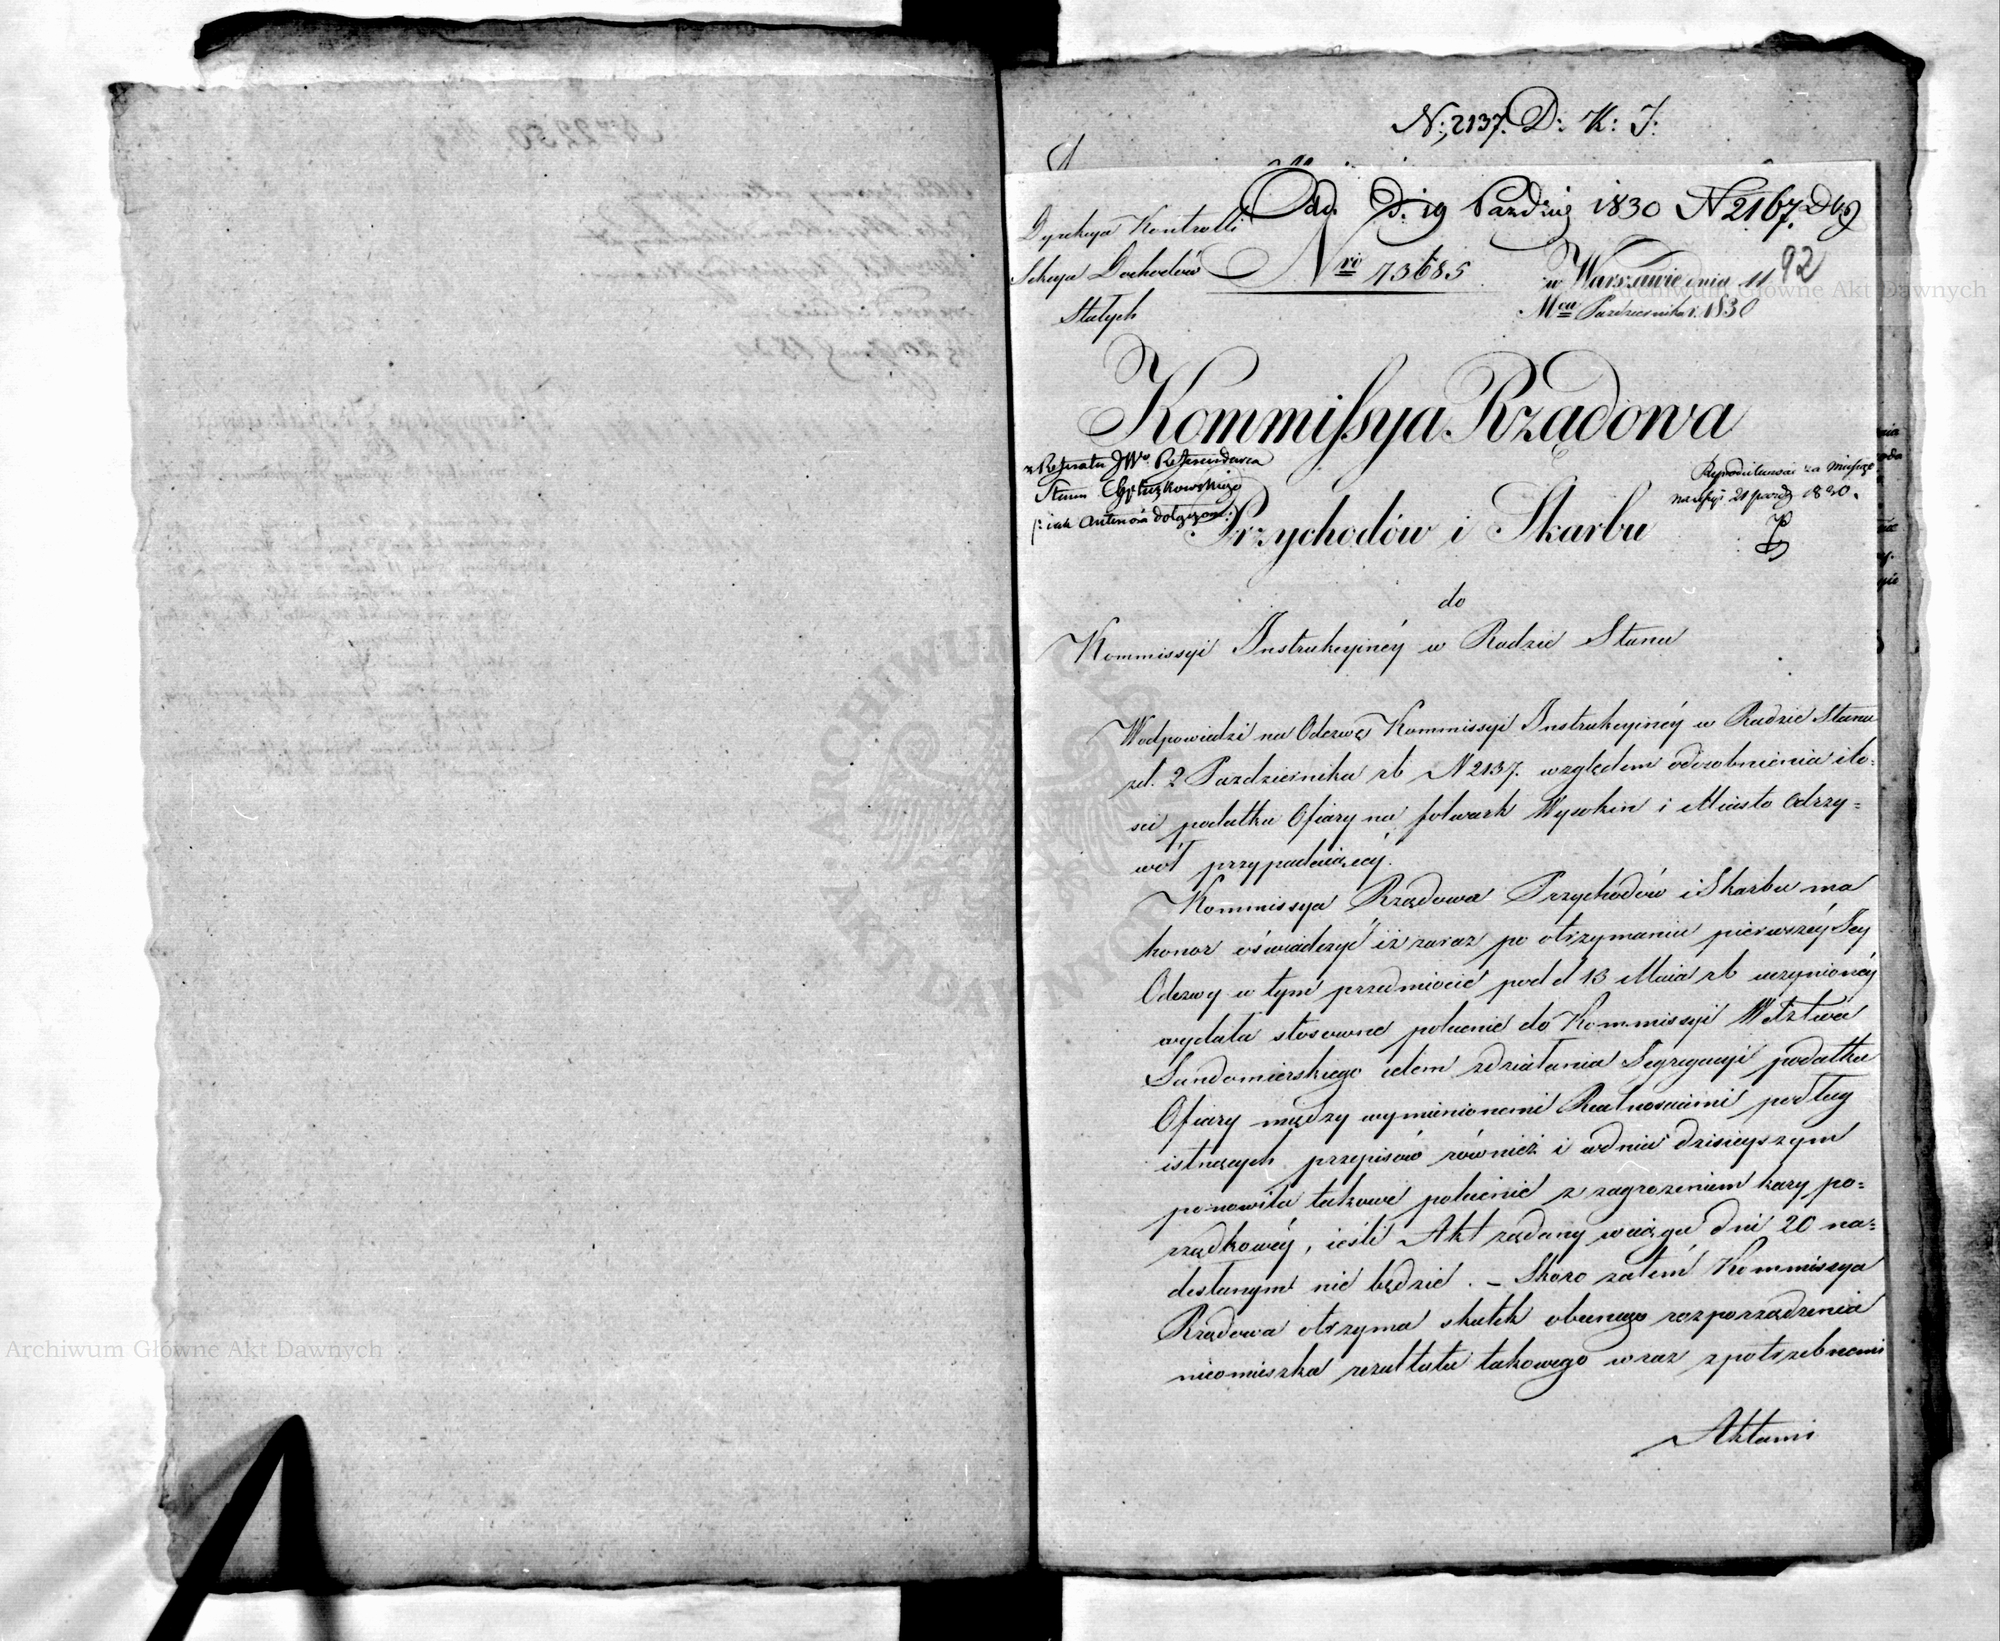 N: 2137. D: K: J:
Odd. D. 19 Paździer 1830 N 2167. Dkg
Dyrekcya Kontrolli
Sekcya Dochodów
Stałych
Nri 73685
w Warszawie dnia 11
92
Mca Październikar. 1830
Kommissya Rządowa
z Referatu JWo Referendarza
Stanu
Przychodów i Skarbu
do
Kommissyi Instrukcyinéy w Radzie Stanu
Wodpowiedzi na Odezwę Kommissyi Instrukcyinéy w Radzie Stanu
zd. 2 Października rb N 2137. względem odosobnienia ilo=
sci podatku Ofiary na folwark Wysokin i Miasto Odrzy=
wół przypadaiącéy.
Kommissya Rządowa Przychodów i Skarbu ma
honor oświadczyć iż zaraz po otrzymaniu pierwszéy Jey
Odezwy w tym przedmiocie pod d 13 Maia rb uczynionéy
wydała stosowne polecenie do Kommissyi Wdztwa
Sandomierskiego celem zdziałania Segregacyi podatku
Ofiary między wymienionemi Realnosciami podług
istnących przepisów również i wdniu dzisieyszym
ponowiła takowe polecenie z zagrożeniem kary po=
rządkowéy, ieśli Akt żądany wciągu dni 20 na=
desłanym nie będzie. – Skoro zatém Kommissya
Rządowa otrzyma skutek obecnego rozporządzenia
nieomieszka rezultatu takowego wraz zpotrzebnemi
Aktami
Archiwum Główne Akt Dawnych
Archiwum Główne Akt Dawnych